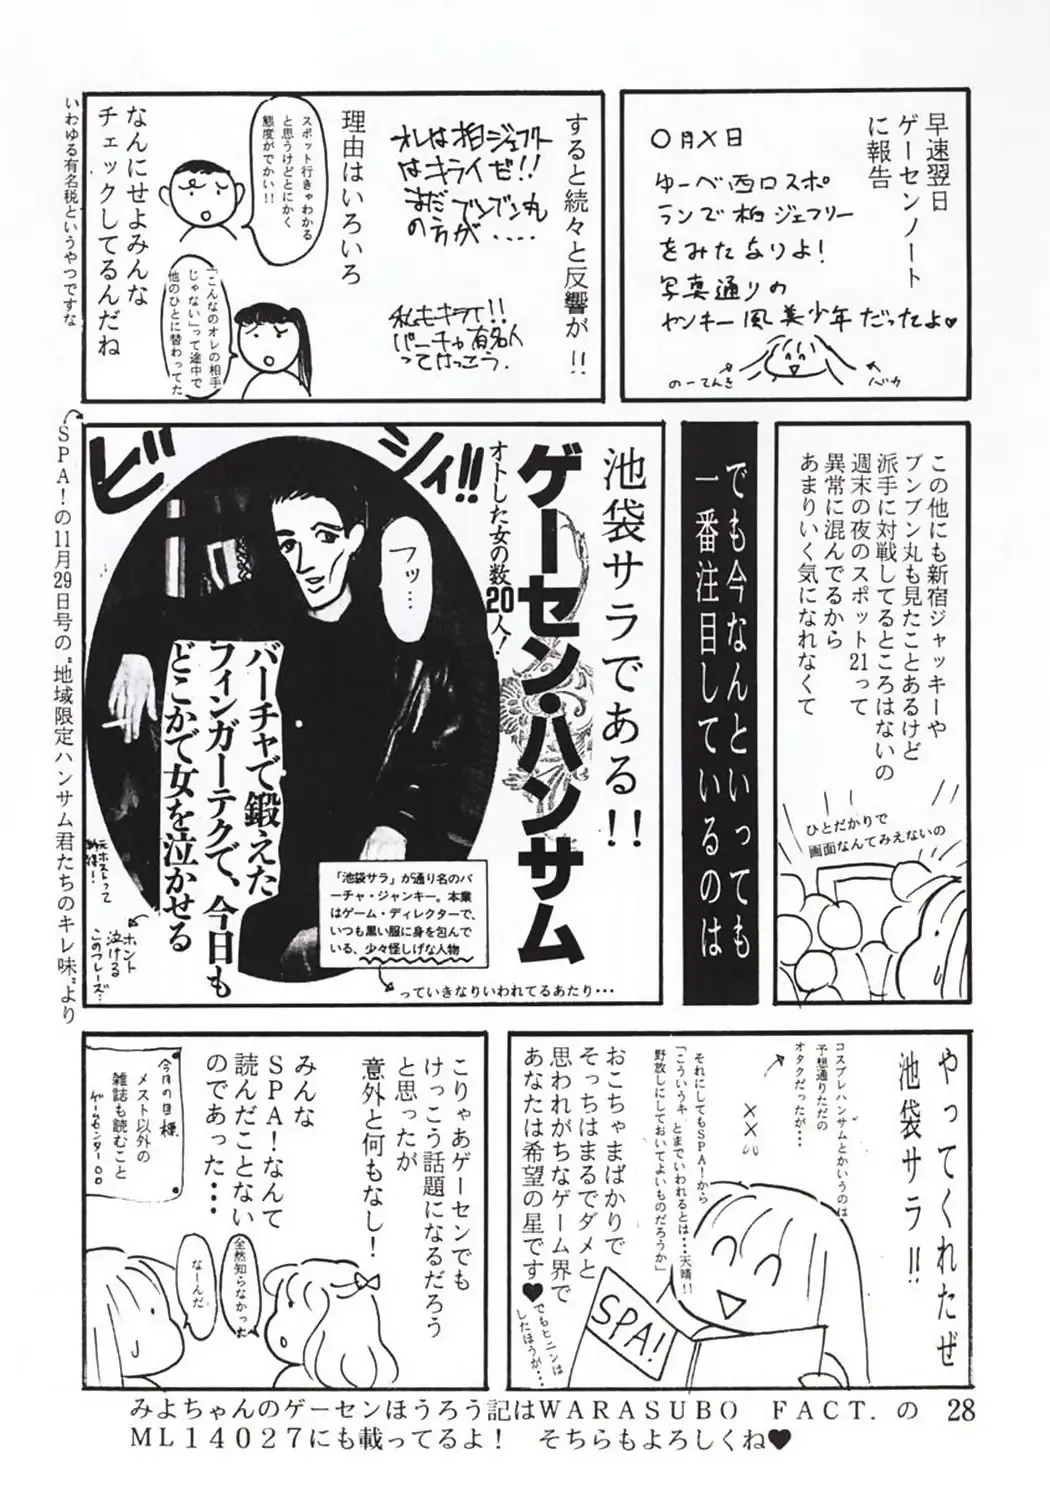 早速翌日
ゲーセンノート
に報告
〇月×日
ゆーべ西口スポ
ランで柏ジェフリー
をみたなりよ!
写真通りの
ヤンキー風美少年だったよ♥
のーてんき
バカ
すると続々と反響が!!
オレは柏ジェフリー
はキライだ!!
まだブンブン丸
の方が....
私もキライ!!
バーチャ有名人
ってけっこう.
理由はいろいろ
スポット行きゃわかる
と思うけどとにかく
態度がでかい!!
「こんなのオレの相手
じゃない」って途中で
他のひとに替わってた
なんにせよみんな
チェックしてるんだね
いわゆる有名税というやつですな
この他にも新宿ジャッキーや
ブンブン丸も見たことあるけど
派手に対戦してるところはないの
週末の夜のスポット21って
異常に混んでるから
あまりいく気になれなくて
ひとだかりで
画面なんてみえないの
でも今なんといっても
一番注目しているのは
池袋サラである!!
ゲーセン・ハンサム
オトした女の数20人!
ビシィ!!
フッ…
バーチャで鍛えた
フィンガーテクで、今日も
どこかで女を泣かせる
「池袋サラ」が通り名のバ
ーチャ・ジャンキー。本業
はゲーム・ディレクターで、
いつも黒い服に身を包んで
いる、少々怪しげな人物
っていきなりいわれてるあたり・・・
ホント
泣ける
このフレーズ…
SPA!の11月29日号の“地域限定ハンサム君たちのキレ味”より
やってくれたぜ
池袋サラ!!
コスプレハンサムとかいうのは
予想通りただの
オタクだったが…
それにしてもSPA!から
「こういうキ とまでいわれるとは…天晴!!
野放しにしておいてよいものだろうか」
おこちゃまばかりで
そっちはまるでダメと
思われがちなゲーム界で
あなたは希望の星です♥
でもヒニンは
したほうが…
SPA!
こりゃあゲーセンでも
けっこう話題になるだろう
と思ったが
意外と何もなし!
みんな
SPA!なんて
読んだことない
のであった・・・
今月の目標
メスト以外の
雑誌も読むこと
ゲームセンター〇〇
全然知らなかった
なーんだ
みよちゃんのゲーセンほうろう記はWARASUBO FACT.の
ML14027にも載ってるよ! そちらもよろしくね♥
28